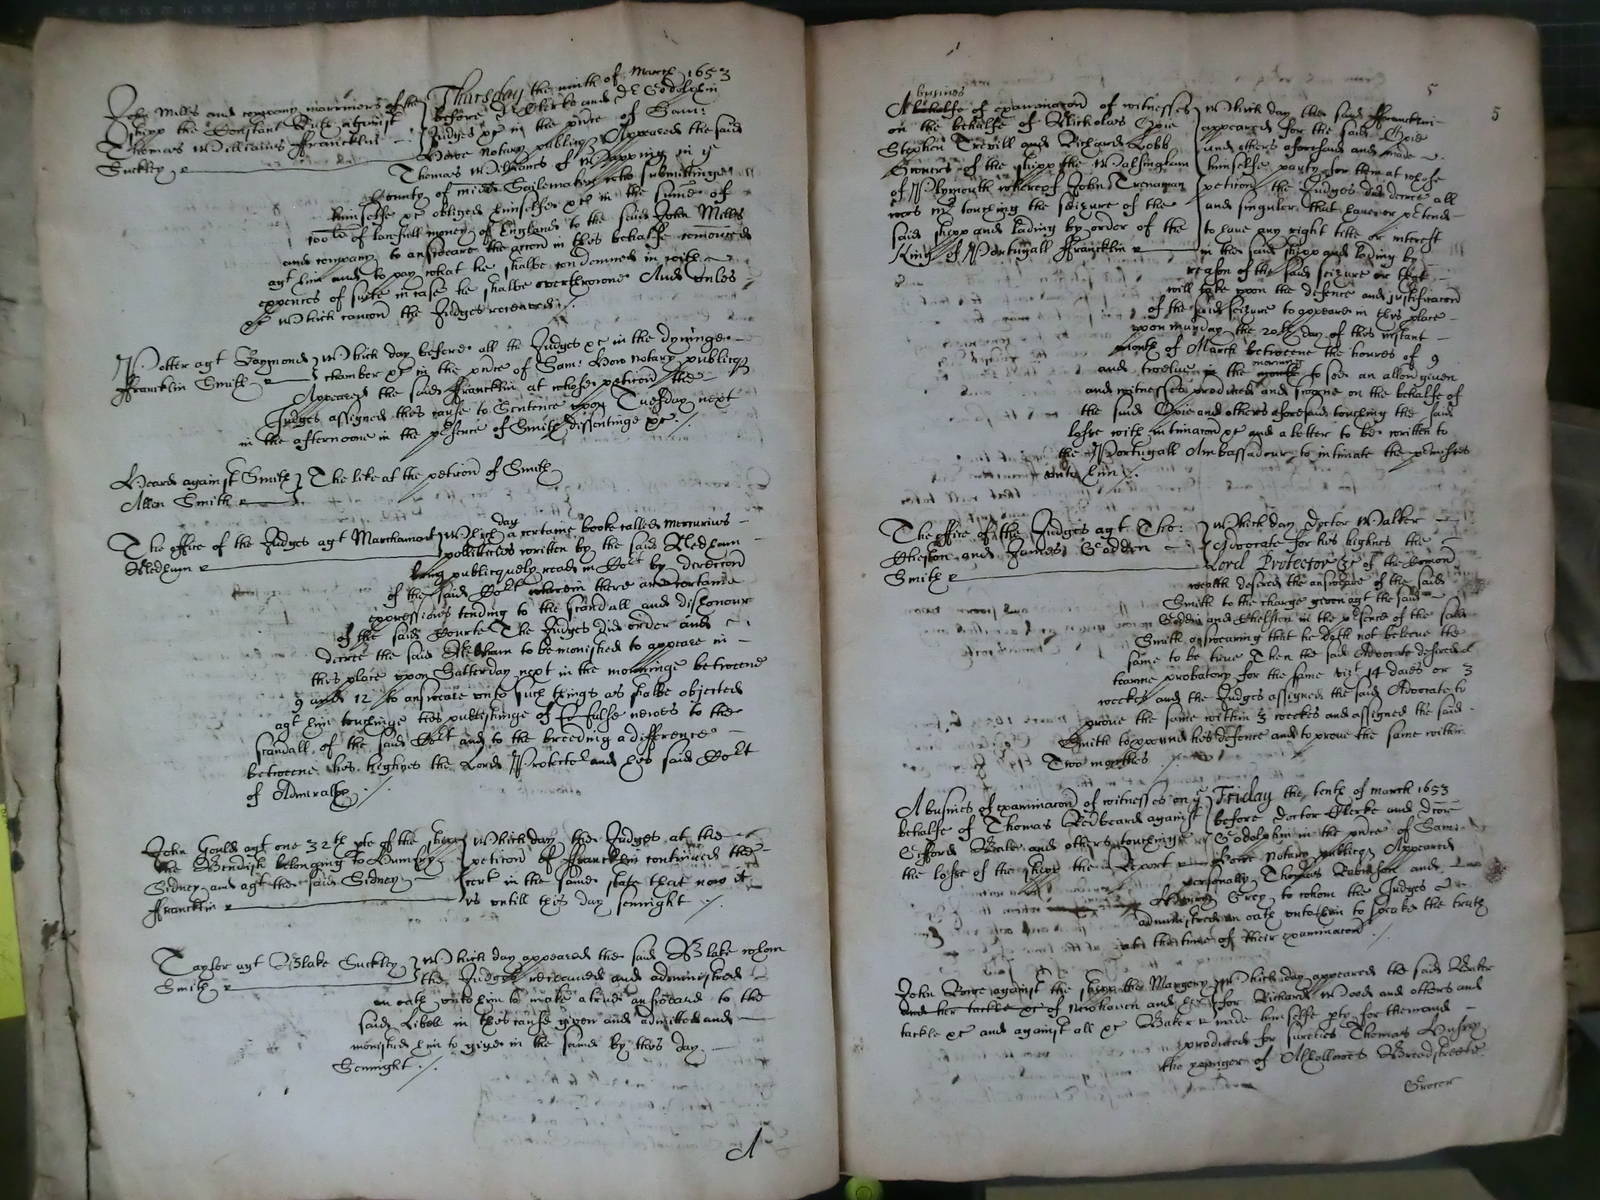 Thursday the ninth of March 1653
John Mills and company marriners of the
shipp the Constant Ruth against
Thomas Williams ffrancklin
Suckley
before Dr Clerke and Dr Godolphin
Judges &c in the pnce of Sam:
Howe Notary publiq Appeared the said
Thomas Williams of Wapping in ye
County of Midds Sailemaker who submittinge
himselfe &c obliged himselfe &c in the summe of
100 li of lawfull money of England to the said John Mills
and company to answeare the accon in this behalfe comenced
agt him and to pay what he shalbe condemned in with
expences of suite in case he shalbe overthrowne And unles &c
Which caucon the Judges received
Potter agt Raymond
ffrancklin Smith
Which day before all the Judges &c in the dyninge
chamber &c in the pnce of Sam: Howe Notary publiq
Appeared the said ffrancklin at whose peticon the
Judges assigned this cause to Sentence upon Tuesday next
in the afternoone in the presence of Smith dissentinge &c
Heard against Smith
Allen Smith
The like at the peticon of Smith
The office of the Judges agt Marchamont
Nedham
Which day a certaine booke called Mercurius
politicus written by the said Nedham
being publicquely read in Cort by direccon
of the said Cort wherein there are certaine
expressions tending to the scandall and dishonour
of the said Courte The Judges did order and
decree the said Nedham to be monished to appeare in
this place upon Satterday next in the morninge betweene
9 and 12 to answeare unto such things as shalbe objected
agt him touchinge his publishinge of false newes to the
scandall of the said Cort and to the breeding a difference
betweene his highnes the Lord Protector and his said Cort
of Admiralty
John Gould agt one 32th pte of the shipp
the Bendish belonging to Humfry
Sidney and agt the said Sidney
ffrancklin
Which day the Judges at the
peticon of ffrancklin continued the
cert in the same state that now it
is untill this day sennight
Taylor agt Blake Suckley
Smith
Which day appeared the said Blake whom
the Judges received and administred
an oath unto him to make a true answeare to the
said libell in this cause given and admitted and
monished him to give in the same by this day
Sennight
A
5
5
busines
A behalfe of examinacon of witnesses
on the behalfe of Nicholas Opie
Stephen Trevill and Richard Cobb
Owners of the shipp the Walsingham
of Plymouth whereof John Trenaman
was Mr touching the seizure of the
said shipp and lading by order of the
King of Portugall ffrancklin
Which day the said ffrancklin
appeared for the said Opie
and others aforesaid and made
himselfe party for them at whose
peticon the Judges did decree all
and singular that have or pretend
to have any right title or interest
in the said shipp and lading by
reason of the said seizure or that
will take upon the defence and justificacon
of the said seizure to appeare in this place
upon munday the 20th day of this instant
month of March betweene the houres of 9
and twelve in the morning to see an allon given
and witnesses produced and sworne on the behalfe of
the said Opie and others aforesaid touching the said
losse with intimacon &c and a letter to be written to
the Portugall Ambassadour to intimate the premisses
unto him
The office of the Judges agt Tho:
and James
Smith
Which day doctor Walker
Advocate for his highnes the
Lord Protector &c of the Comon
wealth desired the answeare of the said
Smith to the charge given agt the said
and in the presence of the said
Smith answearing that he doth not beleeve the
same to be true Then the said Advocate desired a
tearme probatory for the same vizt 14 daies or 3
weekes and the Judges assigned the said Advocate to
prove the same within 3 weekes and assigned the said
Smith to pound his defence and to prove the same within
Two monthes
A busines of examinacon of witnesses on ye
behalfe of Thomas Redbeard against
Gifford Bale and others touching
the losse of the shipp the
Friday the tenth of March 1653
before doctor Clerke and doctor
Godolphin in the pnce of Sam:
Howe Notary publiq Appeared
personally Thomas Rabnson and
Grey to whom the Judges
administred an oath unto him to speake the truth
at the time of their examinacon
John Rowe against the shipp the Margery
and her tackle &c of Newhaven and
tackle &c and against all &c Baker
Which day appeared the said Baker
for Richard Wood and others and
made himselfe pty for them and
produced for sureties Thomas
the younger of Alhallowes Breadstreete
Grocer